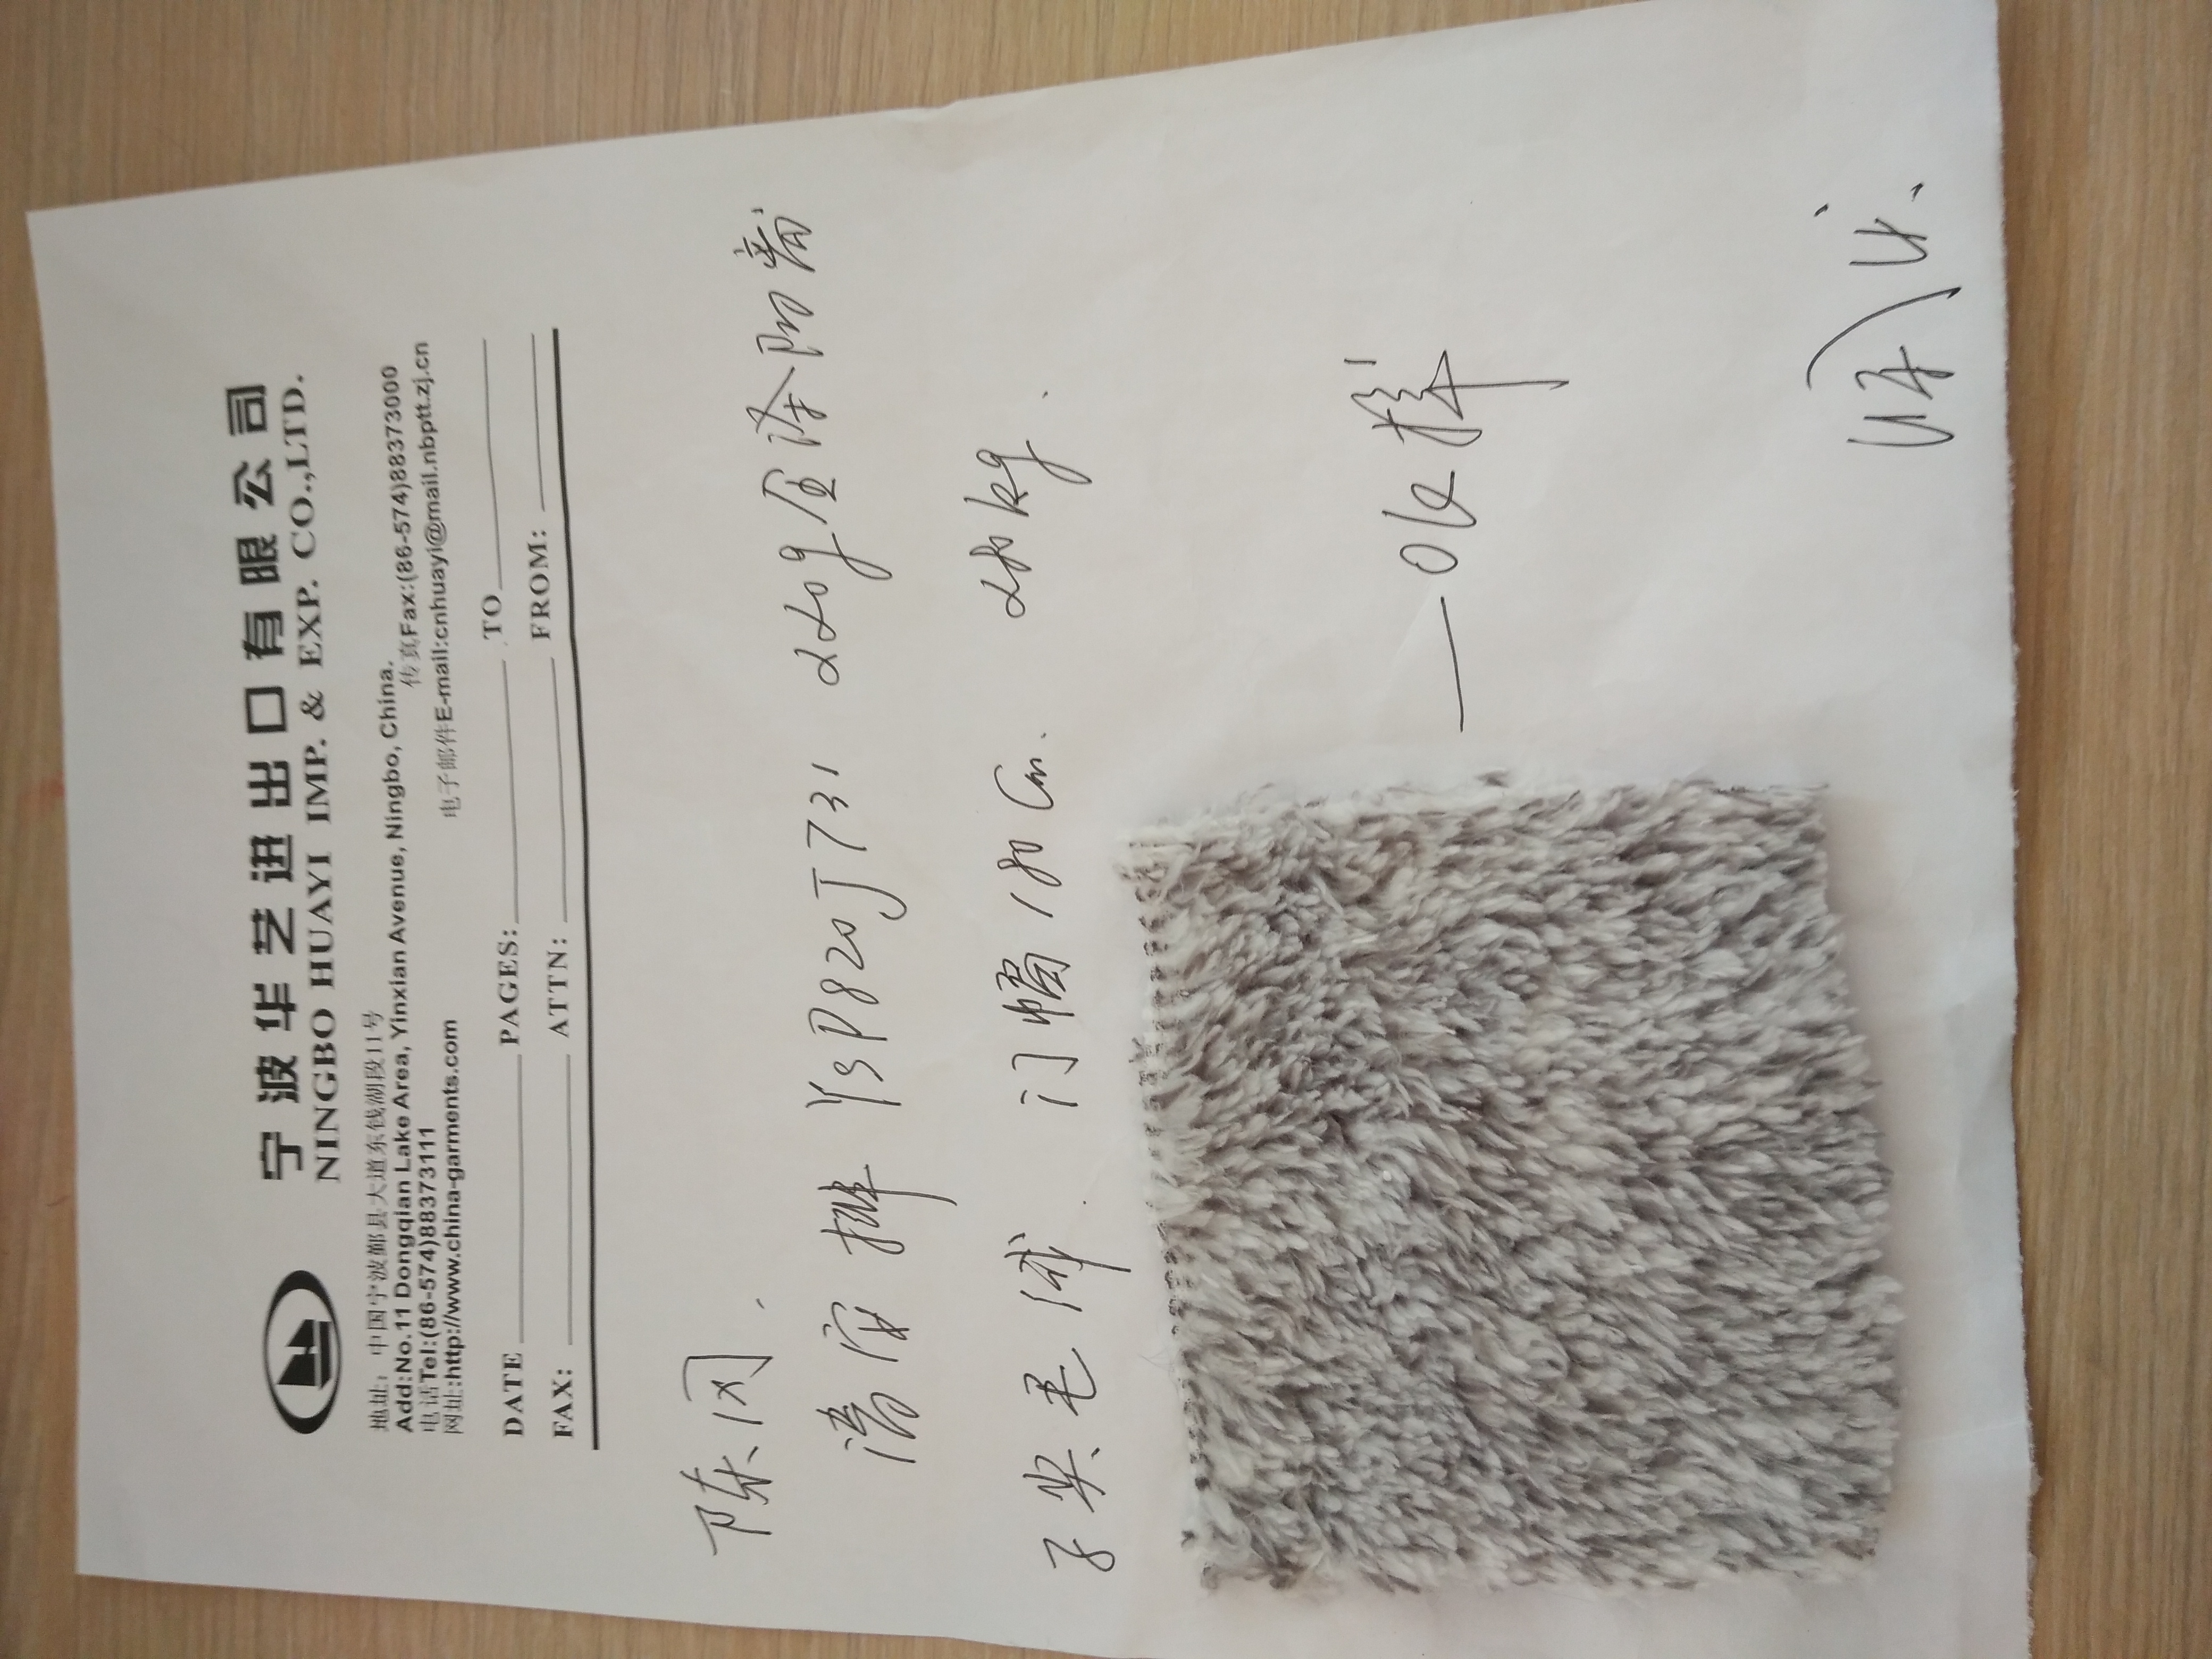 宁波华艺进出口有限公司
NINGBO HUAYI IMP. & EXP. CO.,LTD.
地址: 中国宁波鄞县大道东钱湖段11号
Add:No.11 Dongqian Lake Area, Yinxian Avenue, Ningbo, China.
电话Tel:(86-574)88373111 传真Fax:(86-574)88373000
网址:http://www.china-garments.com 电子邮件E-mail:cnhuayi@mail.nbptt.zj.cn
DATE PAGES: TO
FAX: ATTN: FROM:
陈
请安排 YSP820JT31 220g
毛 门幅180cm. 280kg.
—OK样